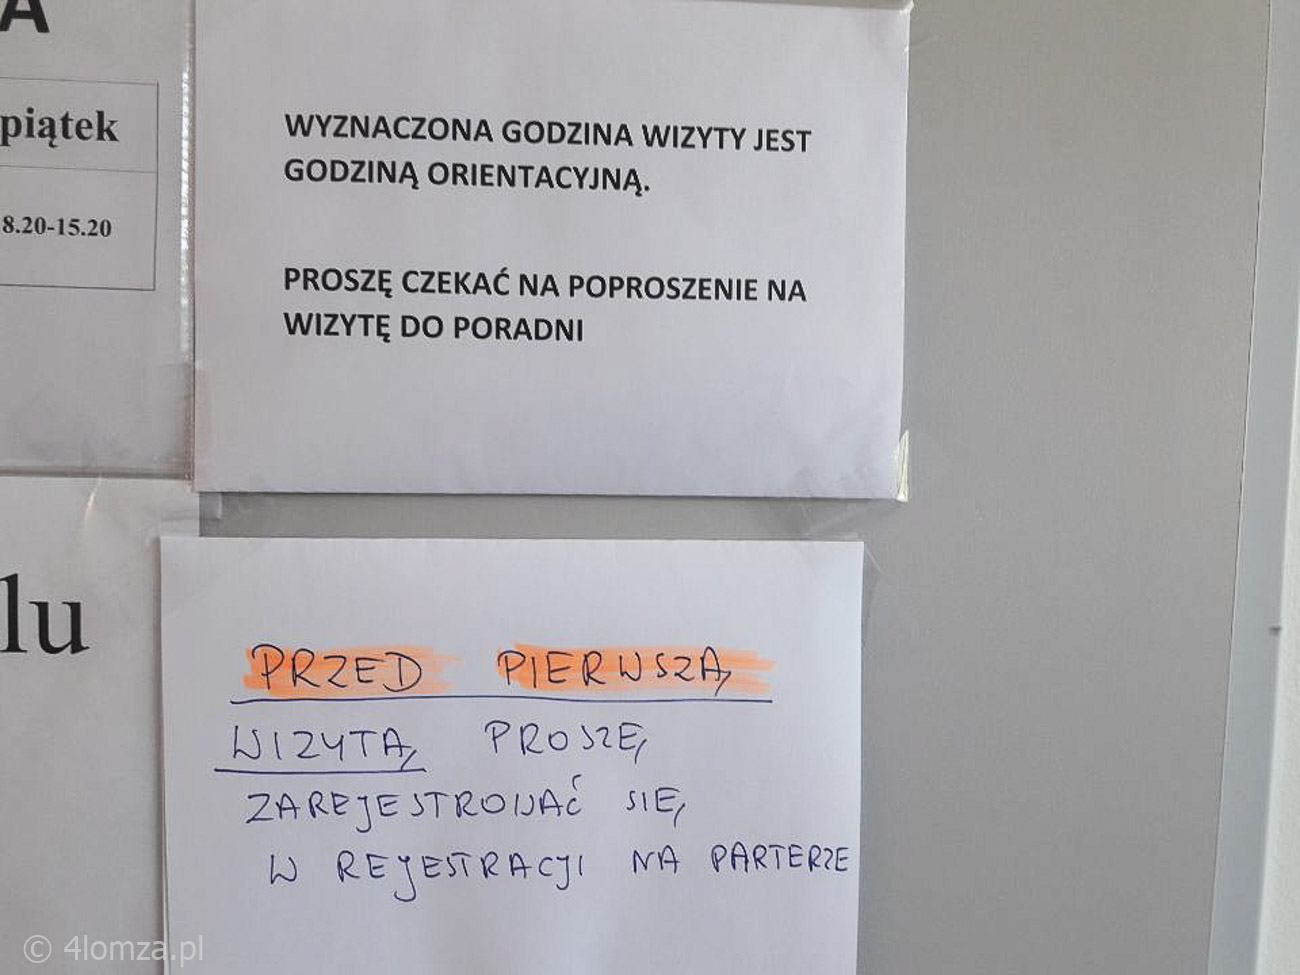 A
piątek
8.20-15.20
WYZNACZONA GODZINA WIZYTY JEST
GODZINĄ ORIENTACYJNĄ.
PROSZĘ CZEKAĆ NA POPROSZENIE NA
WIZYTĘ DO PORADNI
lu
PRZED PIERWSZĄ
WIZYTĄ PROSZĘ
ZAREJESTROWAĆ SIĘ
W REJESTRACJI NA PARTERZE
© 4lomza.pl